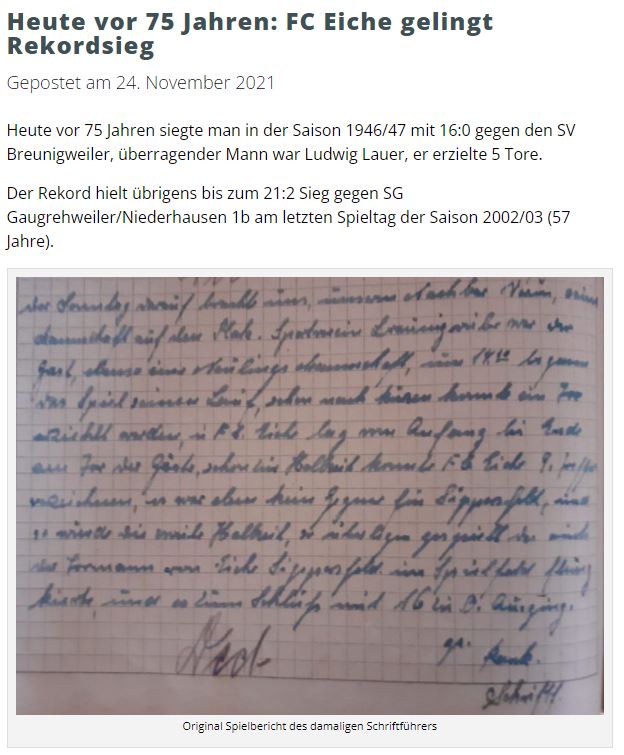 Heute vor 75 Jahren: FC Eiche gelingt
Rekordsieg
Gepostet am 24. November 2021
Heute vor 75 Jahren siegte man in der Saison 1946/47 mit 16:0 gegen den SV
Breunigweiler, überragender Mann war Ludwig Lauer, er erzielte 5 Tore.
Der Rekord hielt übrigens bis zum 21:2 Sieg gegen SG
Gaugrehweiler/Niederhausen 1b am letzten Spieltag der Saison 2002/03 (57
Jahre).
der Sonntag darauf brachte uns, unsern Nachbar
Mannschaft auf den Platz. Sportverein war der
Gast, ebenso eine Neulings Mannschaft, um 14
das Spiel seinen Lauf, schon nach kurzen konnte ein Tor
erziehlt werden, F.C. Eiche lag von Anfang bis Ende
am Tor der Gäste, schon in Halbzeit konnte F.C. Eiche 9.
verzeichnen, es war eben kein Gegner für Sippersfeld, und
so wurde die zweite Halbzeit, so überlegen gespielt das auch
der Tormann von Eiche Sippersfeld im Spielfeld
und es zum Schluß mit 16 zu 0. Ausging.
gz.
Schriftf.
Original Spielbericht des damaligen Schriftführers